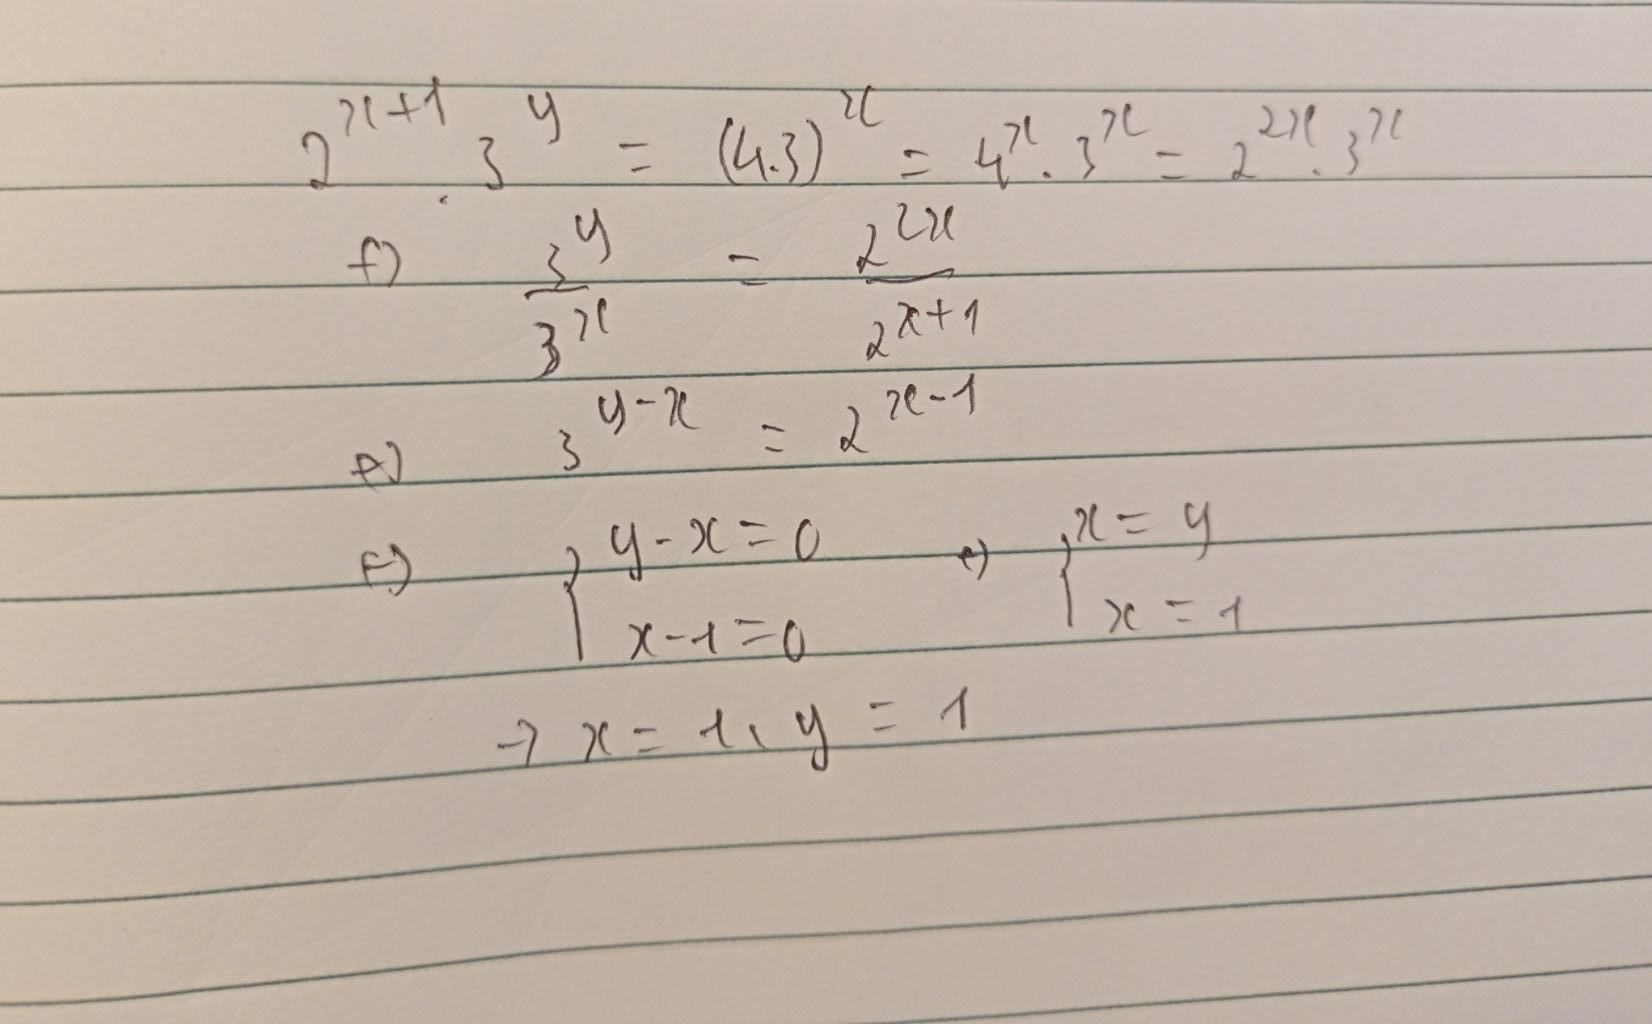 2^{x+1} . 3^y = (4.3)^x = 4^x . 3^x = 2^{2x} . 3^x
⇔ \frac{3^y}{3^x} = \frac{2^{2x}}{2^{x+1}}
⇔ 3^{y-x} = 2^{x-1}
⇔ { y-x=0 ⇔ { x=y
x-1=0 x=1
→ x=1, y=1